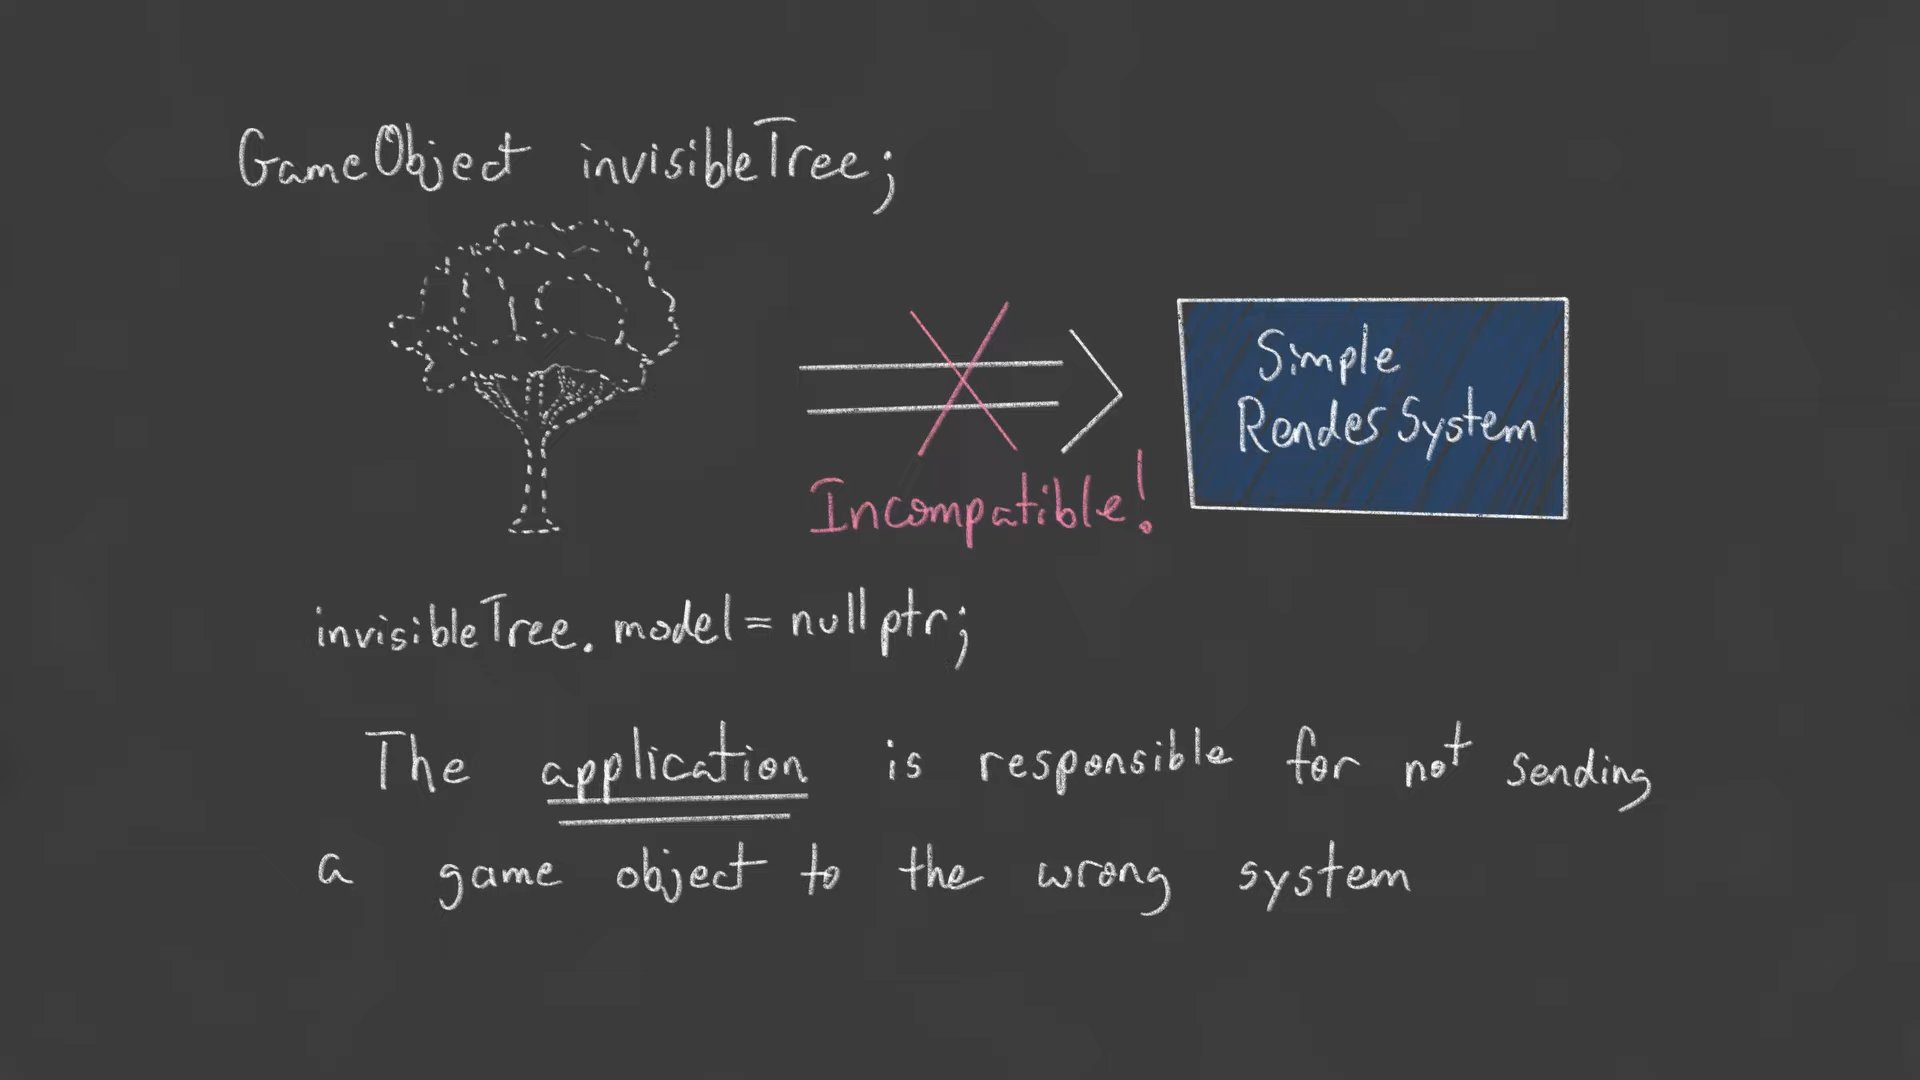 GameObject invisibleTree;
Simple
Render System
Incompatible!
invisibleTree.model = nullptr;
The application is responsible for not sending
a game object to the wrong system